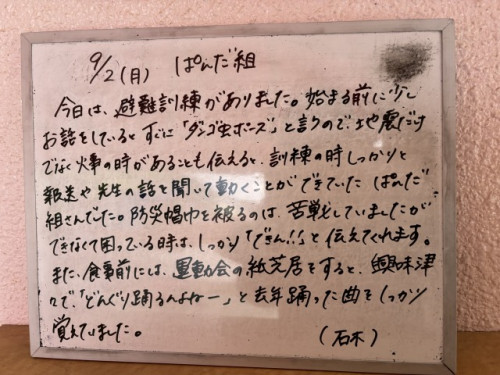 9/2(月) ぱんだ組
今日は、避難訓練がありました。始まる前に少し
お話をしていると すぐに「ダンゴ虫ポーズ」と言うので、地震だけ
でなく火事の時があることも伝えると、訓練の時しっかりと
放送や先生の話を聞いて動くことができていた ぱんだ
組さんでした。防災帽巾を被るのは、苦戦していましたが
できなくて困っている時は、しっかり「できん!!」と伝えてくれます。
また、食事前には、運動会の紙芝居をすると、興味津
々で、「どんぐり踊るんよねー」と去年踊った曲をしっかり
覚えていました。
(石木)